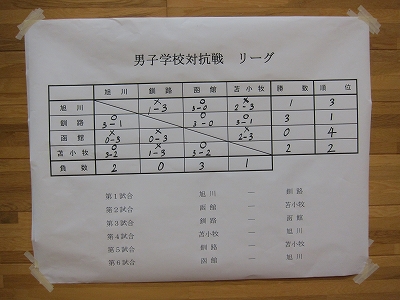 男子学校対抗戦 リーグ
旭川 釧路 函館 苫小牧 勝数 順位
旭川 × 1-3 ○ 3-0 × 2-3 1 3
釧路 ○ 3-1 ○ 3-0 ○ 3-1 3 1
函館 × 0-3 × 0-3 × 2-3 0 4
苫小牧 ○ 3-2 × 1-3 ○ 3-2 2 2
負数 2 0 3 1
第1試合 旭川 — 釧路
第2試合 函館 — 苫小牧
第3試合 釧路 — 函館
第4試合 苫小牧 — 旭川
第5試合 釧路 — 苫小牧
第6試合 函館 — 旭川